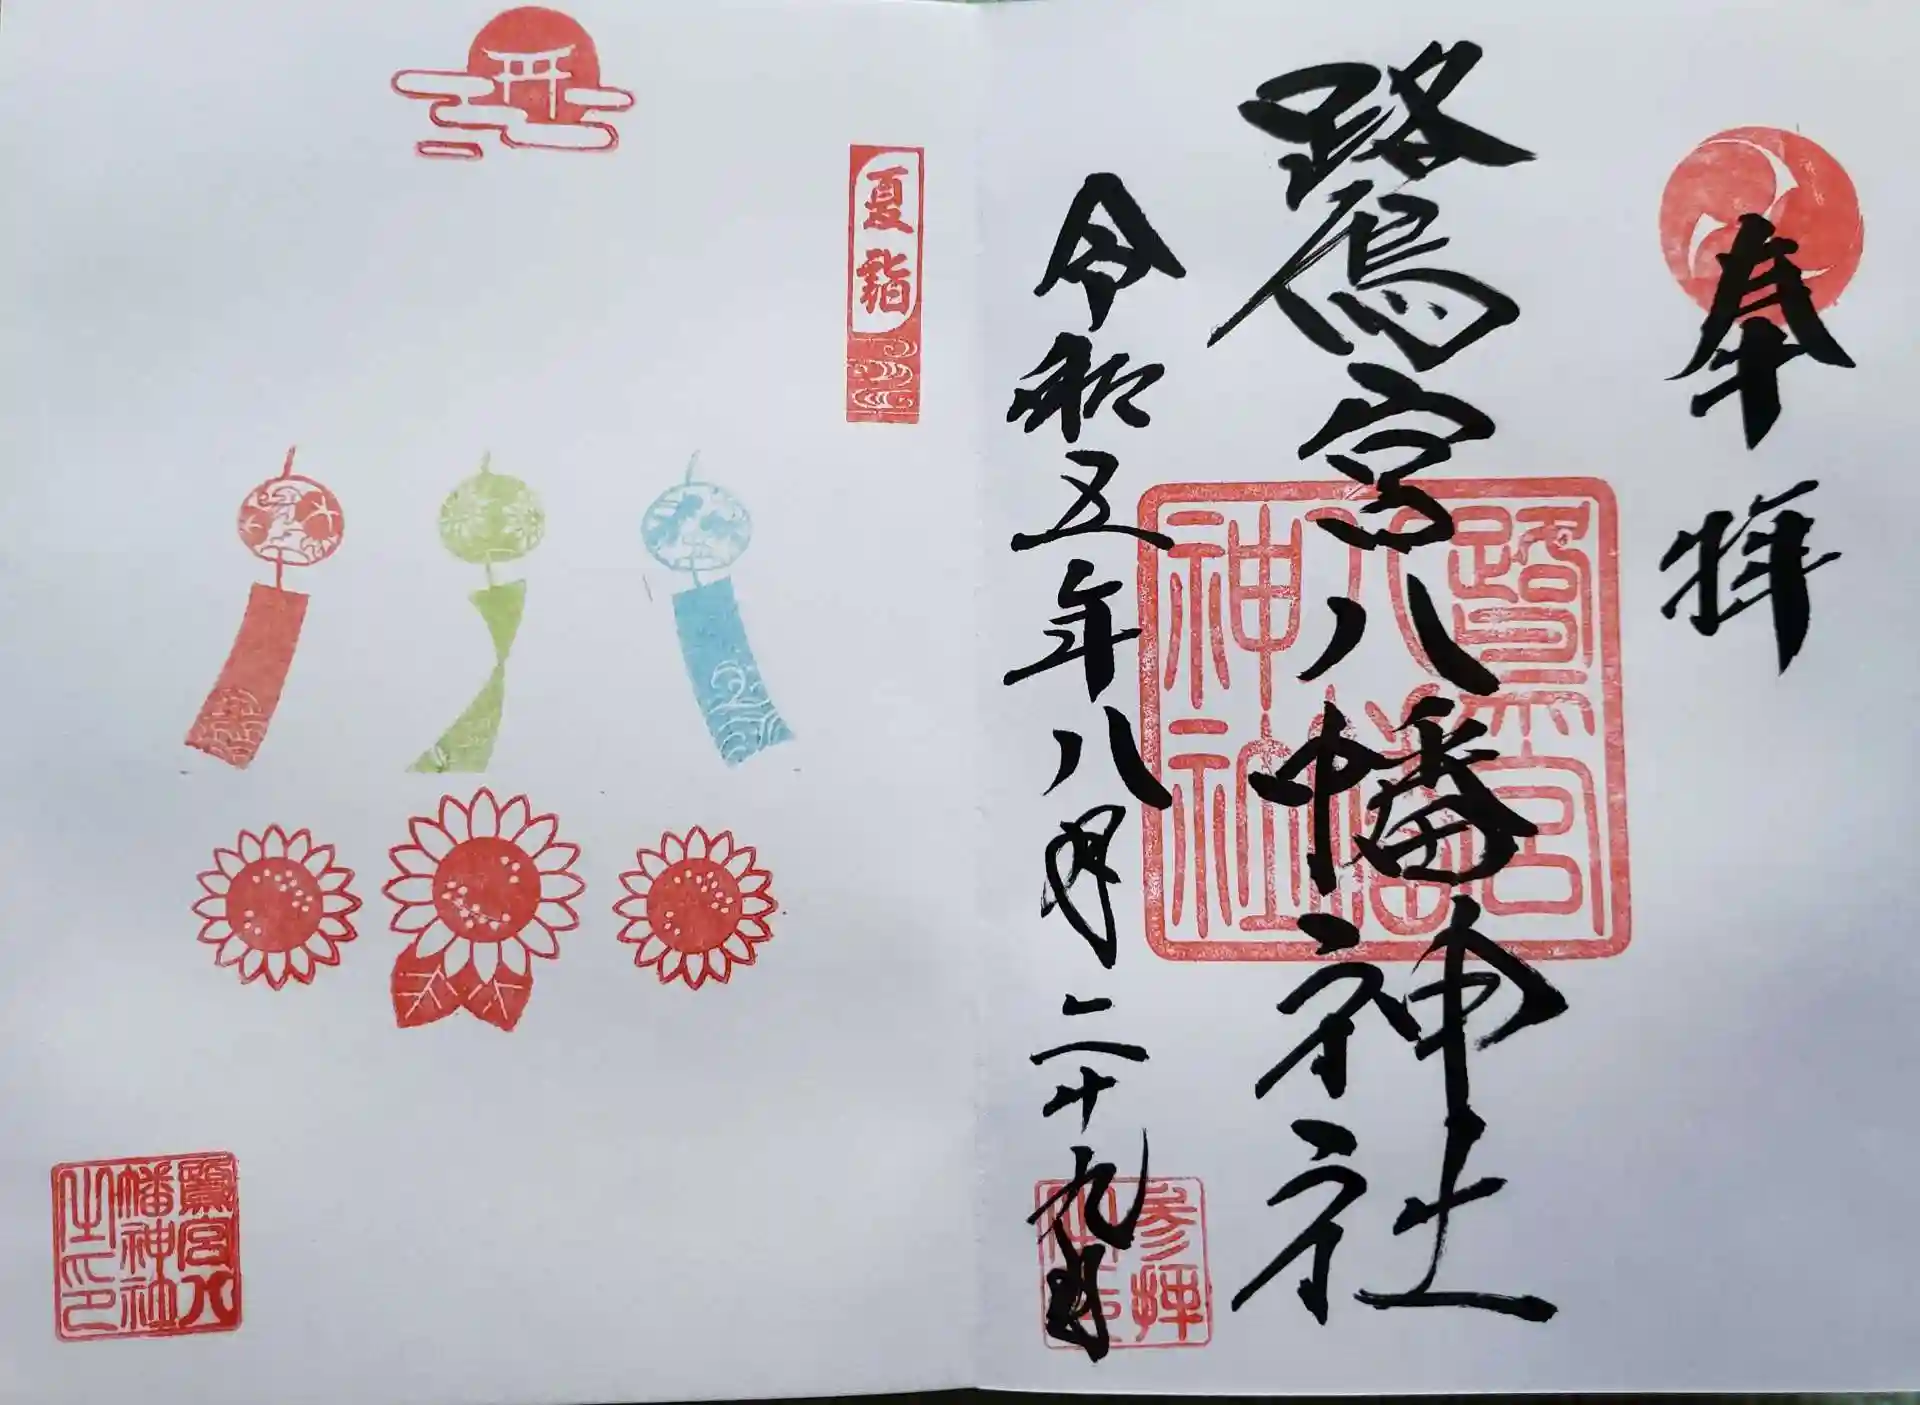 奉拝
鷺宮八幡神社
令和五年八月二十九日
鷺宮
八幡
神社
参拝
夏詣
鷺宮八
幡神社
之印